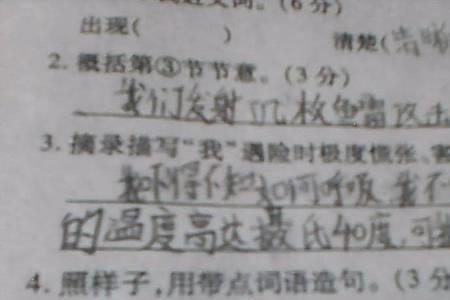 (6分)
出现( ) 清楚(清晰
2. 概括第③节节意。(3分)
我们发射几枚鱼雷攻击
3. 摘录描写“我”遇险时极度慌张、害
如何呼吸 我不
的温度高达摄氏40度,可
4. 照样子,用带点词语造句。(3分